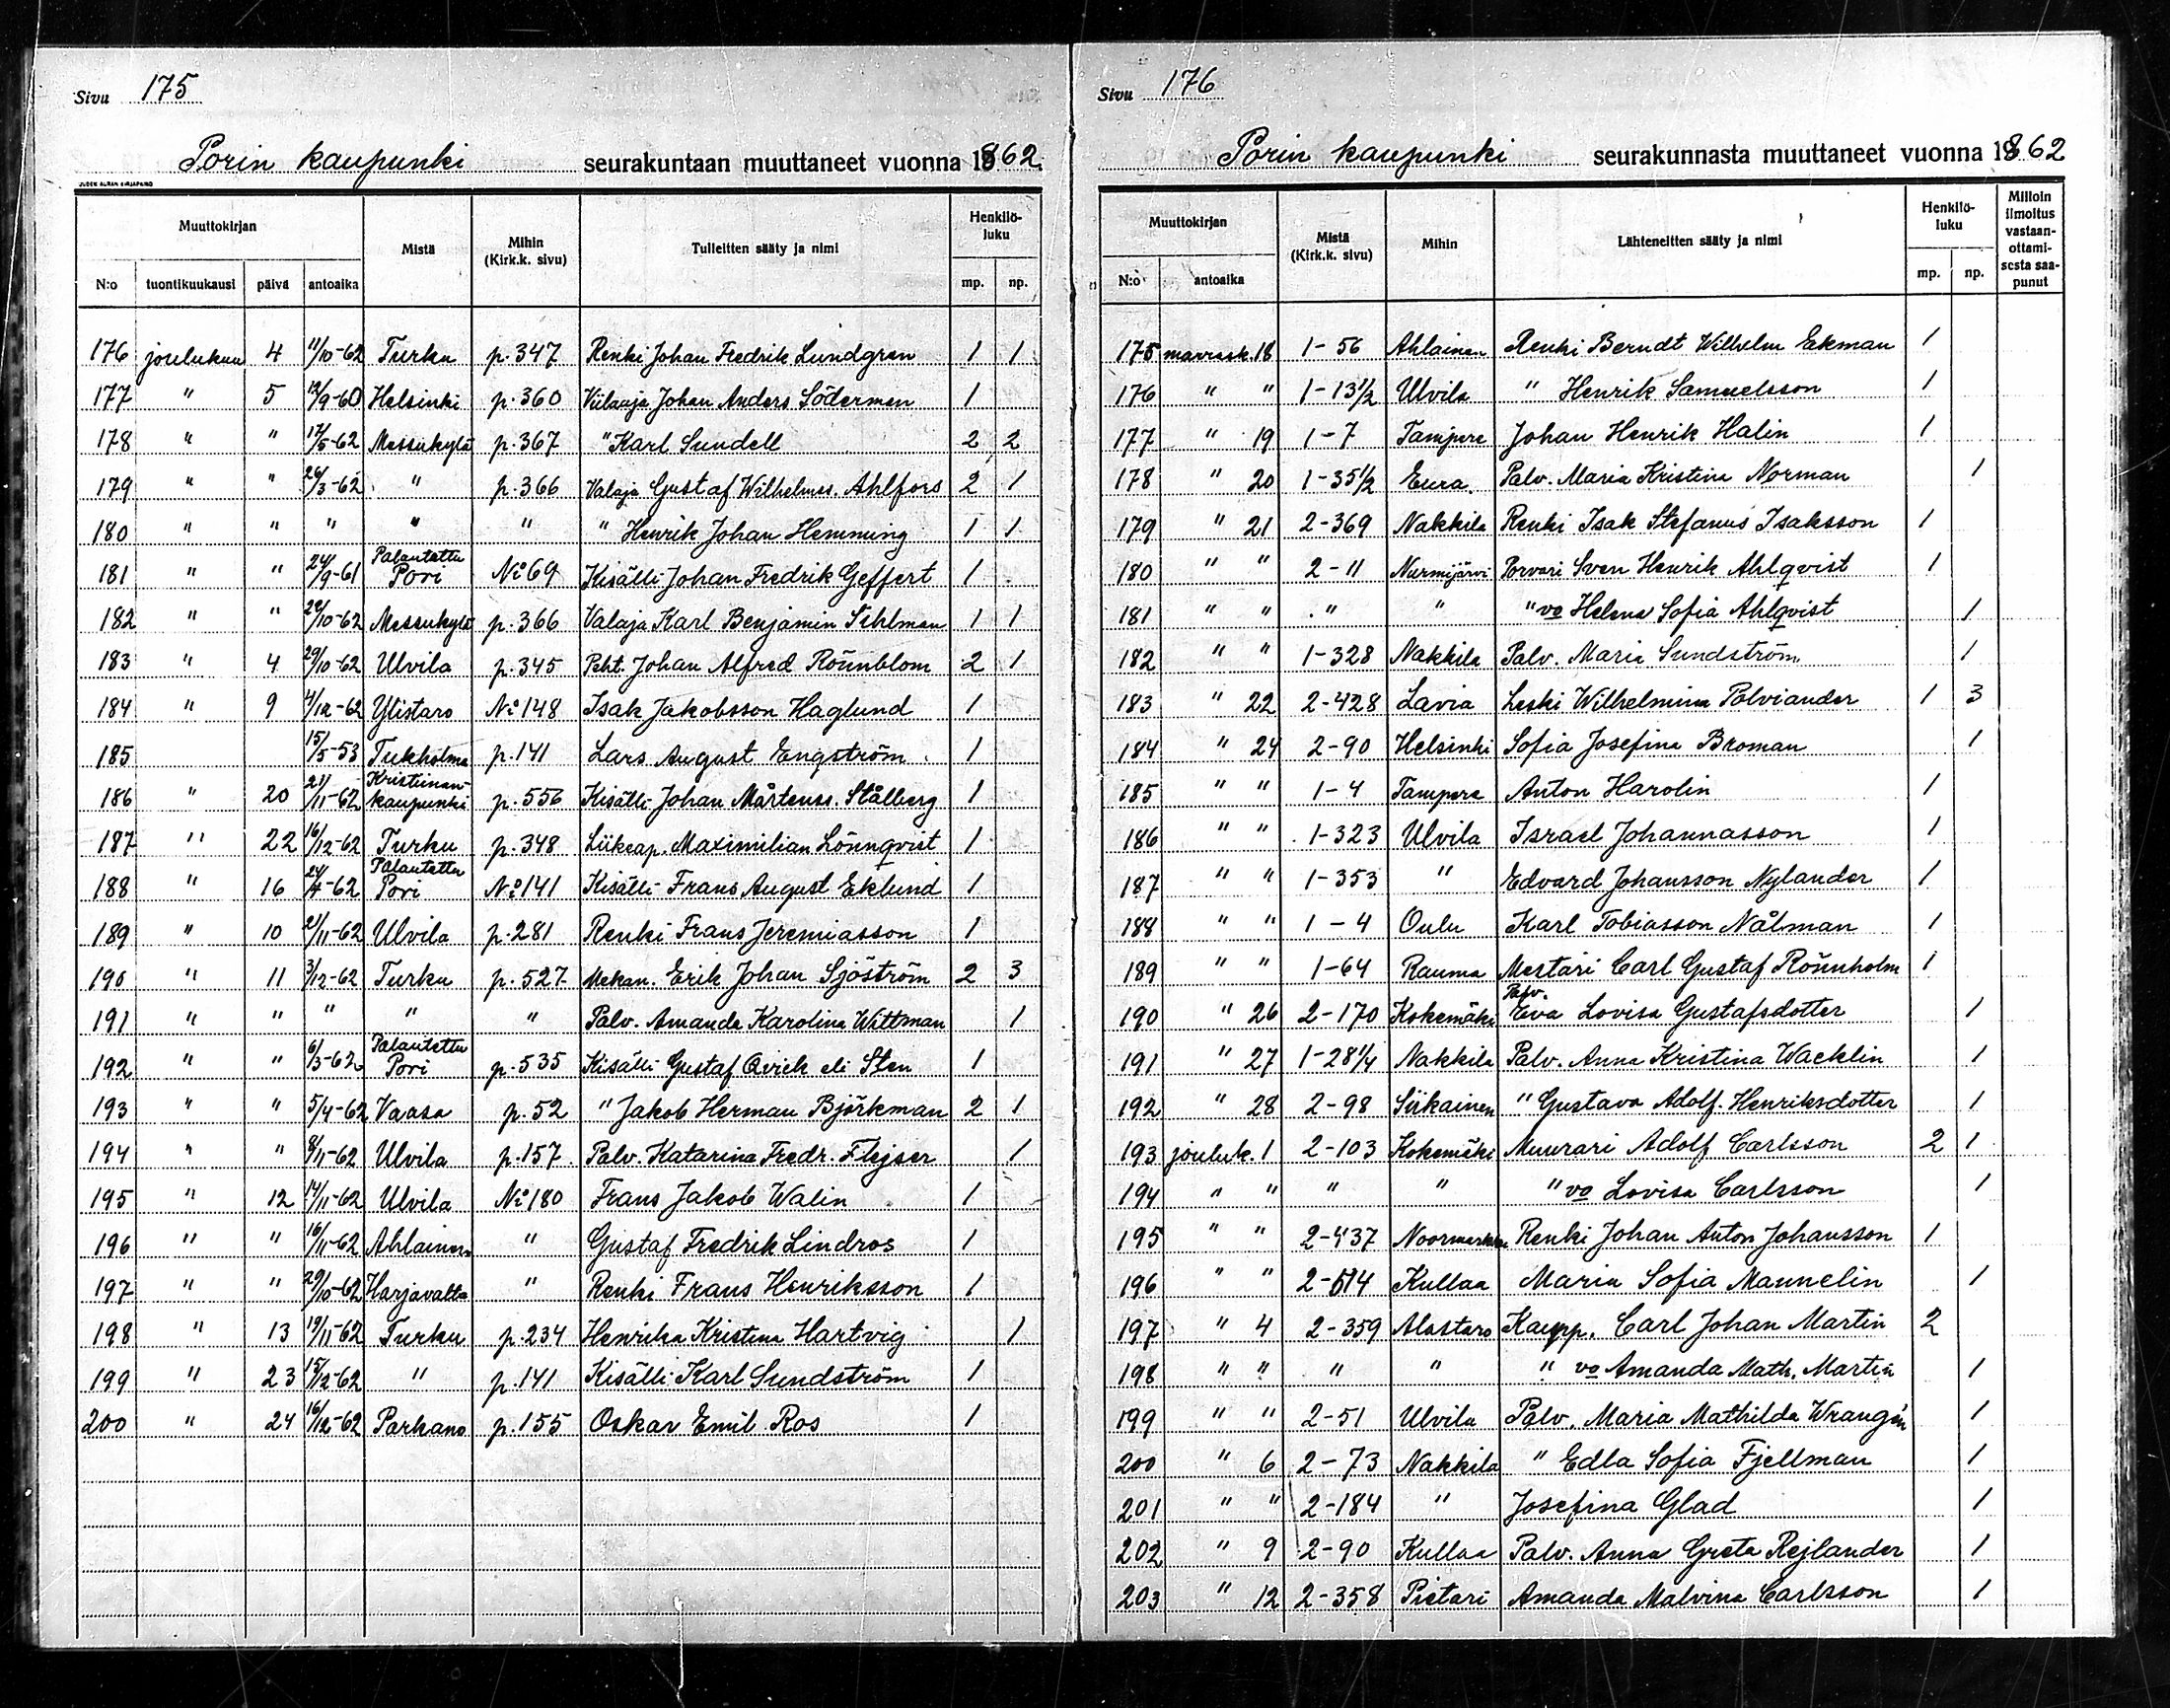 Sivu 175
Porin kaupunki seurakuntaan muuttaneet vuonna 1862
Muuttokirjan Mistä Mihin (Kirk.k. sivu) Tulleitten sääty ja nimi Henkilö-luku
N:o tuontikuukausi päivä antoaika mp. np.
176 joulukuu 4 11/10-62 Turku p.347 Renki Johan Fredrik Lundgren 1 1
177 " 5 12/9-60 Helsinki p.360 Viilaaja Johan Anders Söderman 1
178 " " 17/5-62 Messukylä p.367 " Karl Sundell 2 2
179 " " 26/3-62 " p.366 Valaja Gustaf Wilhelmss. Ahlfors 2 1
180 " " " " " " Henrik Johan Hemming 1 1
181 " " 24/9-61 Palautettu Pori No 69 Kisälli Johan Fredrik Geffert 1
182 " " 22/10-62 Messukylä p.366 Valaja Karl Benjamin Sihlman 1 1
183 " 4 29/10-62 Ulvila p.345 Peht. Johan Alfred Rönnblom 2 1
184 " 9 4/12-62 Ylistaro No 148 Isak Jakobsson Haglund 1
185 15/5-53 Tukholma p.141 Lars August Engström 1
186 " 20 21/11-62 Kristiinan-kaupunki p.556 Kisälli Johan Mårtenss. Stålberg 1
187 " 22 16/12-62 Turku p.348 Liikeap. Maximilian Lönnqvist 1
188 " 16 24/4-62 Palautettu Pori No 141 Kisälli Frans August Eklund 1
189 " 10 21/11-62 Ulvila p.281 Renki Frans Jeremiasson 1
190 " 11 3/12-62 Turku p.527 Mekan. Erik Johan Sjöström 2 3
191 " " " " " Palv. Amanda Karolina Wittman 1
192 " " 6/3-62 Palautettu Pori p.535 Kisälli Gustaf Qvick eli Sten 1
193 " " 5/4-62 Vaasa p.52 " Jakob Herman Björkman 2 1
194 " " 8/11-62 Ulvila p.157 Palv. Katarina Fredr. Flejser 1
195 " 12 14/11-62 Ulvila No 180 Frans Jakob Walin 1
196 " " 16/11-62 Ahlainen " Gustaf Fredrik Lindros 1
197 " " 29/10-62 Harjavalta " Renki Frans Henriksson 1
198 " 13 19/11-62 Turku p.234 Henrika Kristina Hartvig 1
199 " 23 15/12-62 " p.141 Kisälli Karl Sundström 1
200 " 24 16/12-62 Parkano p.155 Oskar Emil Ros 1
Sivu 176
Porin kaupunki seurakunnasta muuttaneet vuonna 1862
Muuttokirjan Mistä (Kirk.k. sivu) Mihin Lähteneitten sääty ja nimi Henkilö-luku Milloin ilmoitus vastaan-ottami-sesta saa-punut
N:o antoaika mp. np.
175 marrask. 18 1-56 Ahlainen Renki Berndt Wilhelm Ekman 1
176 " " 1-13 1/2 Ulvila " Henrik Samuelsson 1
177 " 19 1-7 Tampere Johan Henrik Halin 1
178 " 20 1-35 1/2 Eura Palv. Maria Kristina Norman 1
179 " 21 2-369 Nakkila Renki Isak Stefanus Isaksson 1
180 " " 2-11 Nurmijärvi Porvari Sven Henrik Ahlqvist 1
181 " " " " " vo Helena Sofia Ahlqvist 1
182 " " 1-328 Nakkila Palv. Maria Sundström 1
183 " 22 2-428 Lavia Leski Wilhelmina Polviander 1 3
184 " 24 2-90 Helsinki Sofia Josefina Broman 1
185 " " 1-4 Tampere Anton Harolin 1
186 " " 1-323 Ulvila Israel Johannasson 1
187 " " 1-353 " Edvard Johansson Nylander 1
188 " " 1-4 Oulu Karl Tobiasson Nålman 1
189 " " 1-64 Rauma Mestari Carl Gustaf Rönnholm 1
190 " 26 2-170 Kokemäki Palv. Eva Lovisa Gustafsdotter 1
191 " 27 1-28 1/4 Nakkila Palv. Anna Kristina Wacklin 1
192 " 28 2-98 Siikainen " Gustava Adolf. Henriksdotter 1
193 jouluk. 1 2-103 Kokemäki Muurari Adolf Carlsson 2 1
194 " " " " " vo Lovisa Carlsson 1
195 " " 2-437 Noormarkku Renki Johan Anton Johansson 1
196 " " 2-514 Kullaa Maria Sofia Mannelin 1
197 " 4 2-359 Alastaro Kaupp. Carl Johan Martin 2
198 " " " " " vo Amanda Math. Martin 1
199 " " 2-51 Ulvila Palv. Maria Mathilda Wrangén 1
200 " 6 2-73 Nakkila " Edla Sofia Fjellman 1
201 " " 2-184 " Josefina Glad 1
202 " 9 2-90 Kullaa Palv. Anna Greta Rejlander 1
203 " 12 2-358 Pietari Amanda Malvina Carlsson 1